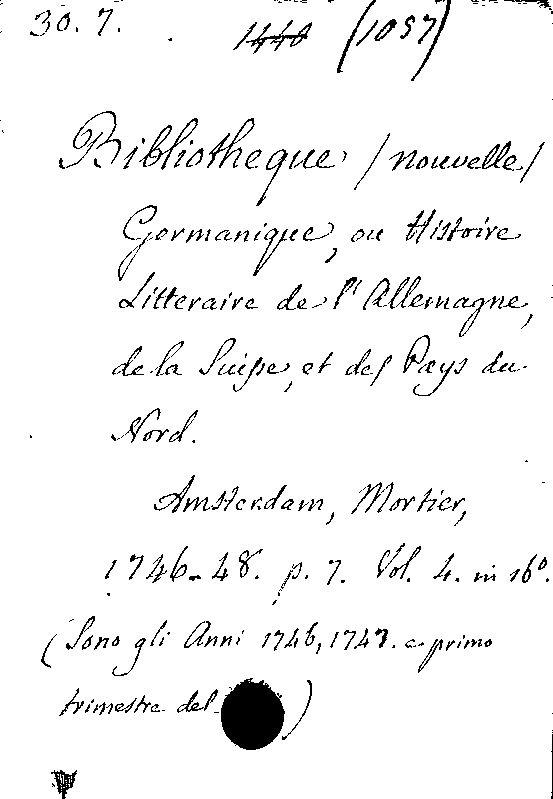 30. 7. 1440 (1057)
Bibliotheque (nouvelle)
Germanique, ou Histoire
Litteraire de l'Allemagne,
de la Suisse, et des Pays du
Nord.
Amsterdam, Mortier,
1746-48. p. 7. Vol. 4. in 16º.
(Sono gli Anni 1746, 1747. e primo
trimestre del )